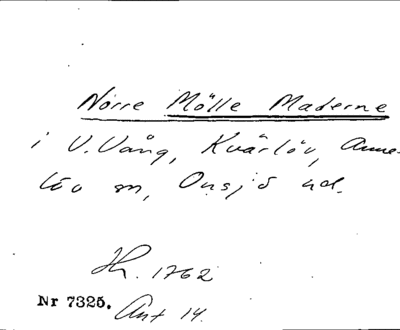 Norre Mölle Maderne
i V. Vång, Kvärlöv, Anne-
löv sn, Onsjö hd.
Hh. 1762
Nr 7325. Ant 14.